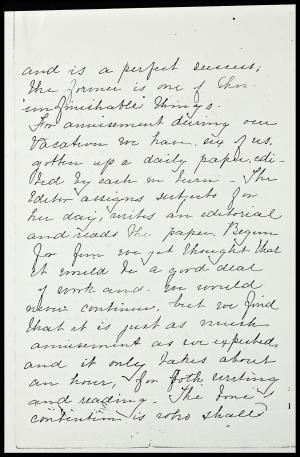 and is a perfect success;
the former is one of the
"unfinishable" things.
For amusement during our
vacation we have, six of us,
gotten up a daily paper, edi-
ted by each in turn. The
Editor assigns subjects for
her day, writes an editorial
and reads the paper. Begun
for fun we yet thought that
it would be a good deal
of work and we would
never continue, but we find
that it is just as much
amusement as we expected,
and it only takes about
an hour, for both writing
and reading. The
contention is who shall